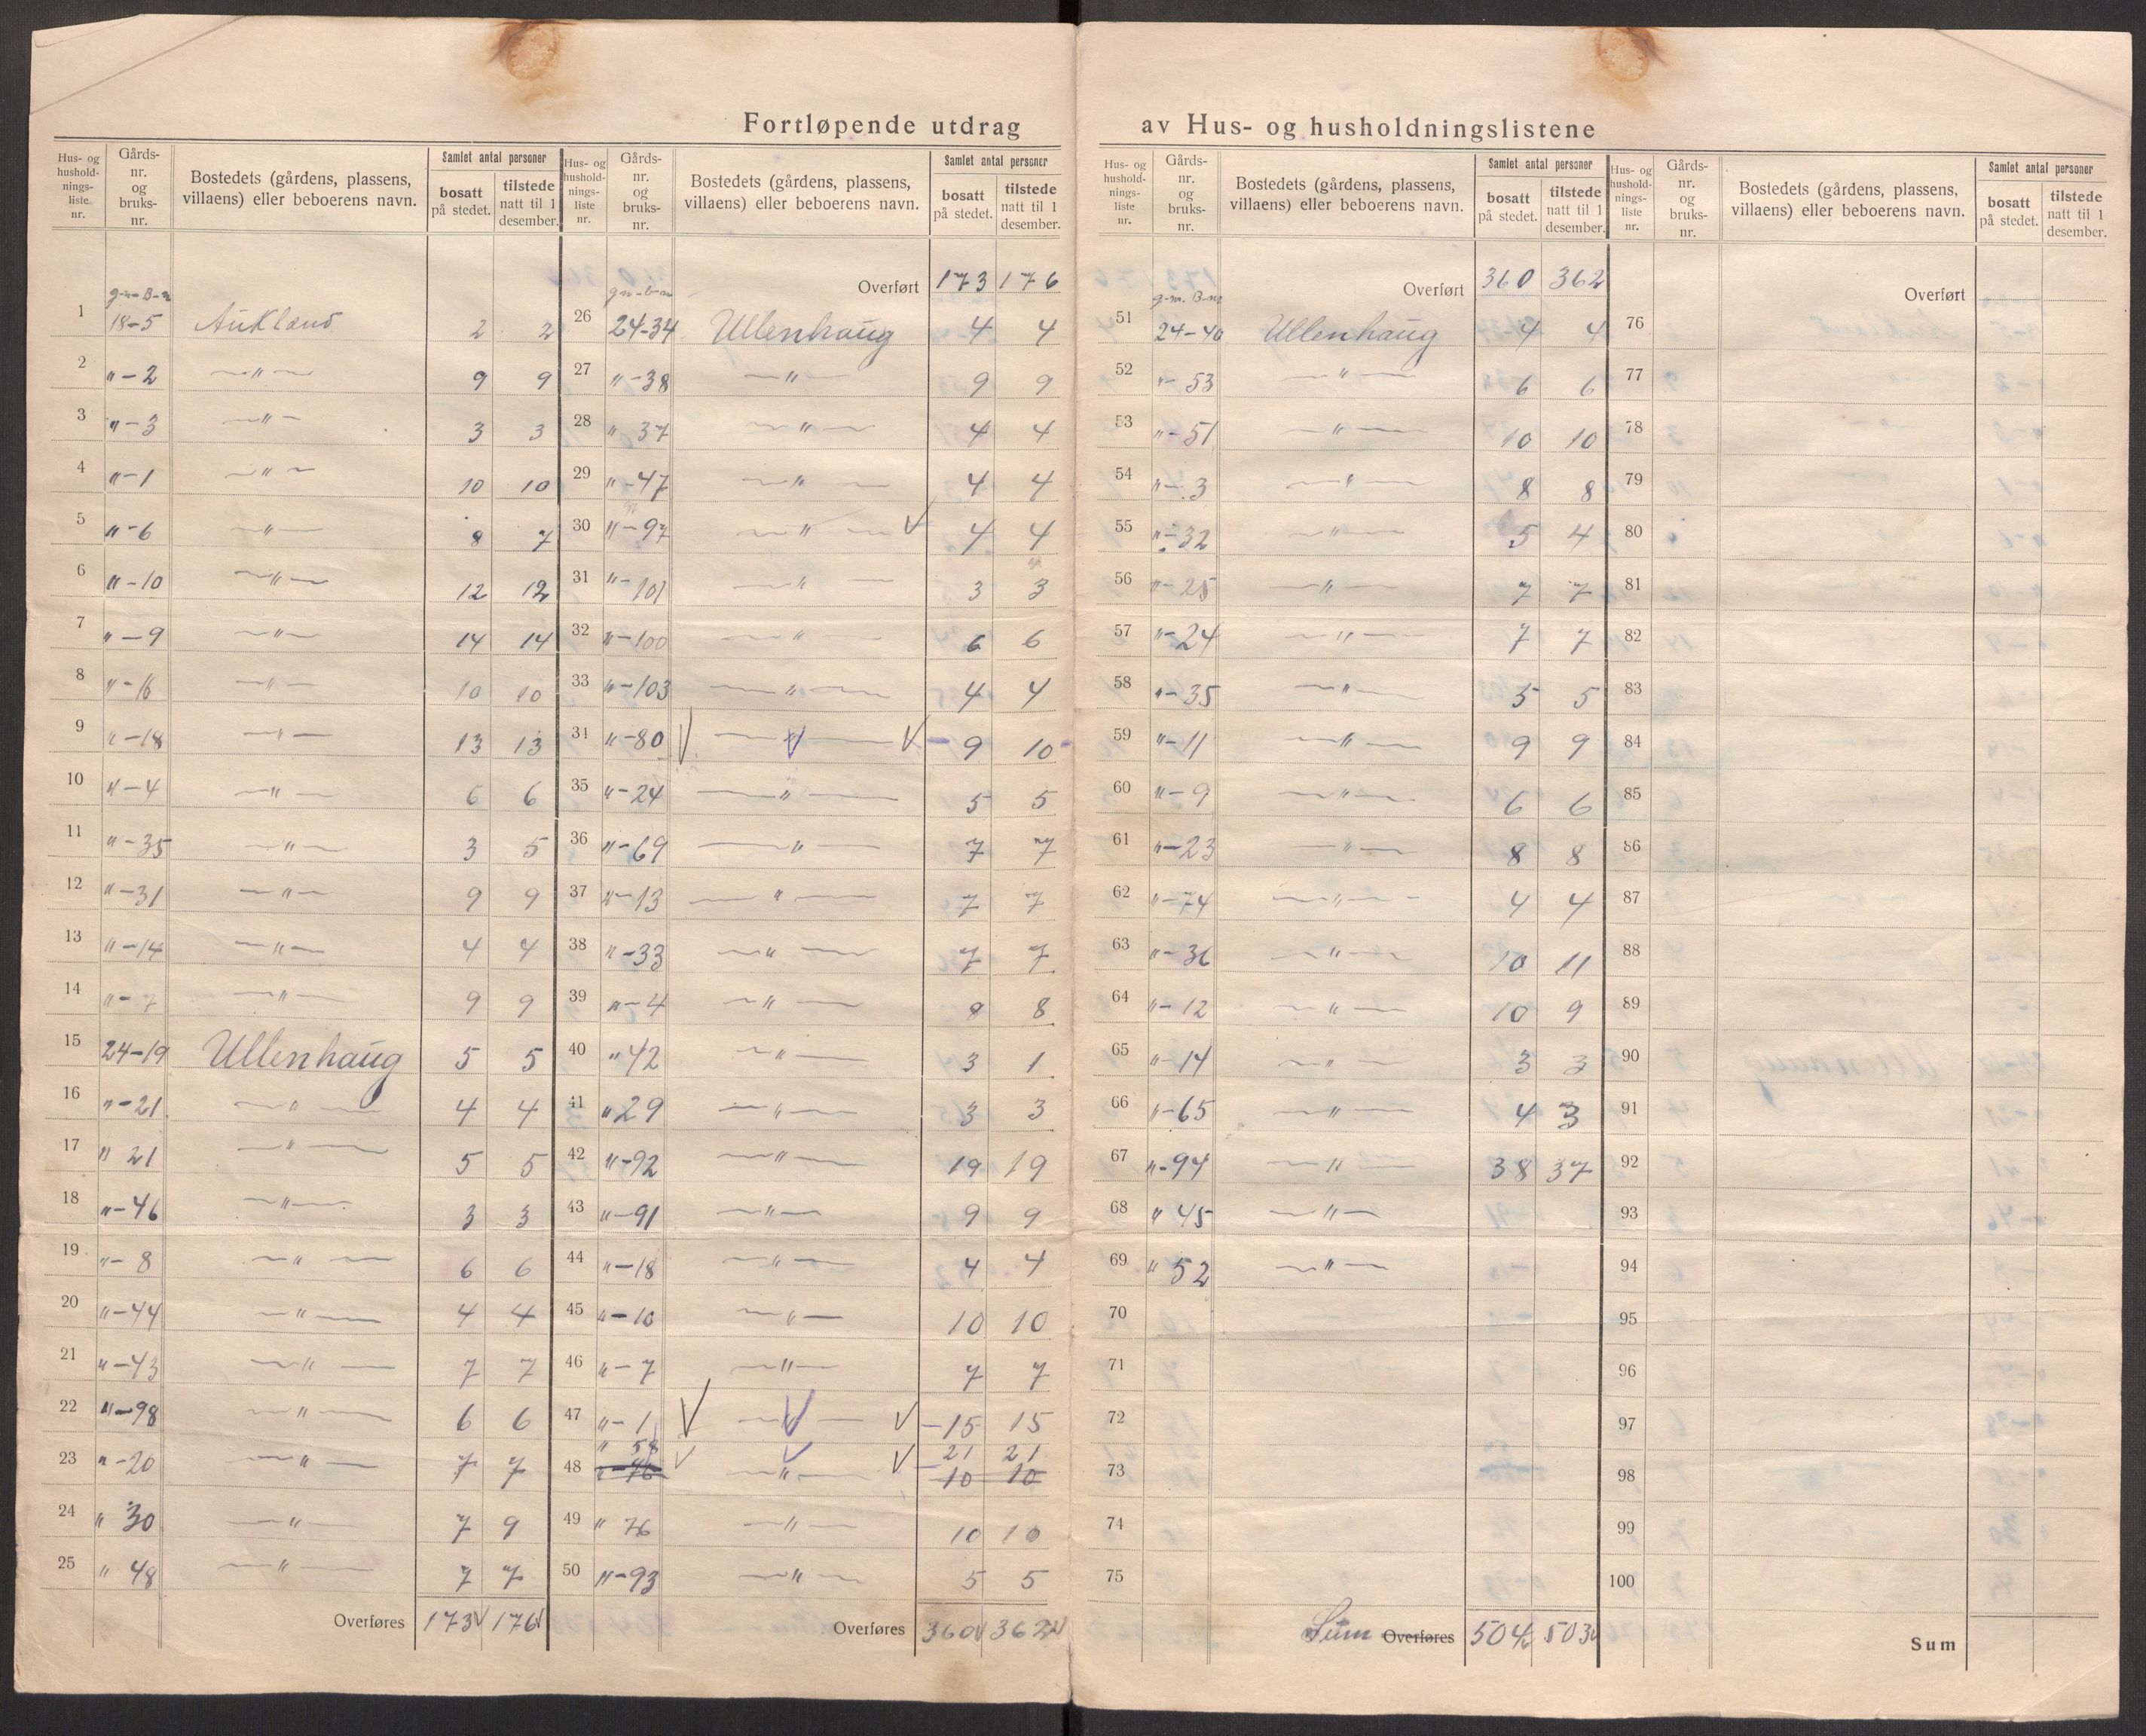 Fortløpende utdrag av Hus- og husholdningslistene
Hus- og hushold- nings- liste nr. Gårds- nr. og bruks- nr. Bostedets (gårdens, plassens, villaens) eller beboerens navn. Samlet antal personer bosatt på stedet. tilstede natt til 1 desember.
g-n- B-n
1 18-5 Aukland 2 2
2 "-2 —"— 9 9
3 "-3 —"— 3 3
4 "-1 —"— 10 10
5 "-6 —"— 8 7
6 "-10 —"— 12 12
7 "-9 —"— 14 14
8 "-16 —"— 10 10
9 "-18 —"— 13 13
10 "-4 —"— 6 6
11 "-35 —"— 3 5
12 "-31 —"— 9 9
13 "-14 —"— 4 4
14 "-7 —"— 9 9
15 24-19 Ullenhaug 5 5
16 "-21 —"— 4 4
17 " 21 —"— 5 5
18 "-46 —"— 3 3
19 "-8 —"— 6 6
20 "-44 —"— 4 4
21 "-43 —"— 7 7
22 "-98 —"— 6 6
23 "-20 —"— 7 7
24 " 30 —"— 7 9
25 " 48 —"— 7 7
Overføres 173 176
Hus- og hushold- nings- liste nr. Gårds- nr. og bruks- nr. Bostedets (gårdens, plassens, villaens) eller beboerens navn. Samlet antal personer bosatt på stedet. tilstede natt til 1 desember.
Overført 173 176
gn-b-n
26 24-34 Ullenhaug 4 4
27 "-38 —"— 9 9
28 " 37 —"— 4 4
29 "-47 —"— 4 4
30 "-97 —"— 4 4
31 "-101 —"— 3 3
32 "-100 —"— 6 6
33 "-103 —"— 4 4
34 "-80 —"— 9 10
35 "-24 —"— 5 5
36 "-69 —"— 7 7
37 "-13 —"— 7 7
38 "-33 —"— 7 7
39 "-4 —"— 8 8
40 "42 —"— 3 1
41 "29 —"— 3 3
42 "-92 —"— 19 19
43 "-91 —"— 9 9
44 "-18 —"— 4 4
45 "-10 —"— 10 10
46 "-7 —"— 7 7
47 "-1 —"— 15 15
" 58 21 21
48 "-76 —"— 10 10
49 " 76 —"— 10 10
50 "-93 —"— 5 5
Overføres 360 362
Hus- og hushold- nings- liste nr. Gårds- nr. og bruks- nr. Bostedets (gårdens, plassens, villaens) eller beboerens navn. Samlet antal personer bosatt på stedet. tilstede natt til 1 desember.
Overført 360 362
g-nr. B-nr
51 24-40 Ullenhaug 4 4
52 "-53 —"— 6 6
53 "-51 —"— 10 10
54 "-3 —"— 8 8
55 "-32 —"— 5 4
56 "-25 —"— 7 7
57 "-24 —"— 7 7
58 "-35 —"— 5 5
59 "-11 —"— 9 9
60 "-9 —"— 6 6
61 "-23 —"— 8 8
62 "-74 —"— 4 4
63 "-36 —"— 10 11
64 "-12 —"— 10 9
65 "-14 —"— 3 3
66 "-65 —"— 4 3
67 "-94 —"— 38 37
68 " 45 —"—
69 " 52 —"—
70
71
72
73
74
75
Sum Overføres 504 503
Hus- og hushold- nings- liste nr. Gårds- nr. og bruks- nr. Bostedets (gårdens, plassens, villaens) eller beboerens navn. Samlet antal personer bosatt på stedet. tilstede natt til 1 desember.
Overført
76
77
78
79
80
81
82
83
84
85
86
87
88
89
90
91
92
93
94
95
96
97
98
99
100
Sum